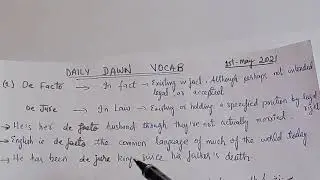 DAILY DAWN VOCAB 1st-may 2021
(1.) De Facto → In fact → Existing in fact, Although perhaps not intended
legal or accepted.
De Jure → In Law → Existing or holding a specified position by legal
→ He is her de facto husband though they're not actually married.
→ English is de facto the common language of much of the world today
→ He has been de jure king since his father's death.